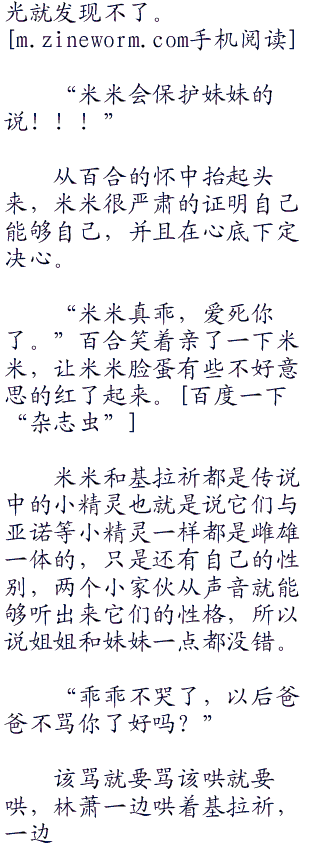 光就发现不了。
[m.zineworm.com手机阅读]
“米米会保护妹妹的
说！！！”
从百合的怀中抬起头
来，米米很严肃的证明自己
能够自己，并且在心底下定
决心。
“米米真乖，爱死你
了。”百合笑着亲了一下米
米，让米米脸蛋有些不好意
思的红了起来。[百度一下
“杂志虫”]
米米和基拉祈都是传说
中的小精灵也就是说它们与
亚诺等小精灵一样都是雌雄
一体的，只是还有自己的性
别，两个小家伙从声音就能
够听出来它们的性格，所以
说姐姐和妹妹一点都没错。
“乖乖不哭了，以后爸
爸不骂你了好吗？”
该骂就要骂该哄就要
哄，林萧一边哄着基拉祈，
一边